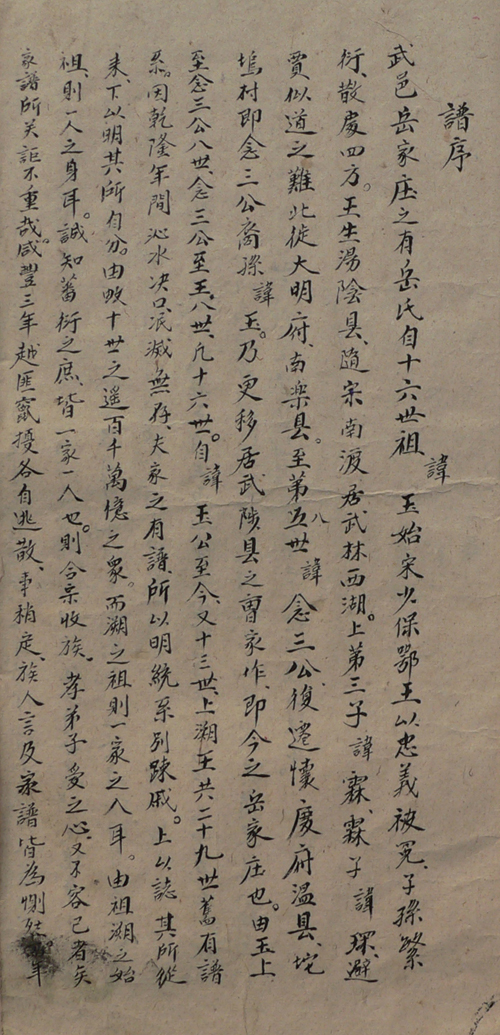 譜序
武邑岳家庄之有岳氏自十六世祖諱玉始宋少保鄂王以忠義被冤、子孫繁
衍、散處四方。王生湯陰县、隨宋南渡居武林西湖。上第三子諱霖、霖子諱琛、避
賈似道之難北徙大明府、南樂县。至第五八世諱念三公、復遷懷慶府温县、坨
塢村即念三公裔孫諱玉。乃更移居武陟县之曹家作、即今之岳家庄也。由玉上
至念三公八世、念三公至王、八世、凡十六世。自諱玉公至今、又十三世、上溯王共二十九世舊有譜
系。因乾隆年間沁水决口、泯滅無存、夫家之有譜、所以明統系别踈戚。上以誌其所從
来、下以明其所自分。由数十世之遥百千萬億之衆。而溯之祖則一家之人耳。由祖溯之始
祖、則一人之身耳。誠知蕃衍之庶、皆一家一人也。則合宗收族、孝弟子爱之心、又不容已者矣
家譜所关詎不重哉。咸豐三年越匪竄擾各自逃散、事稍定、族人言及家譜皆為惻然年